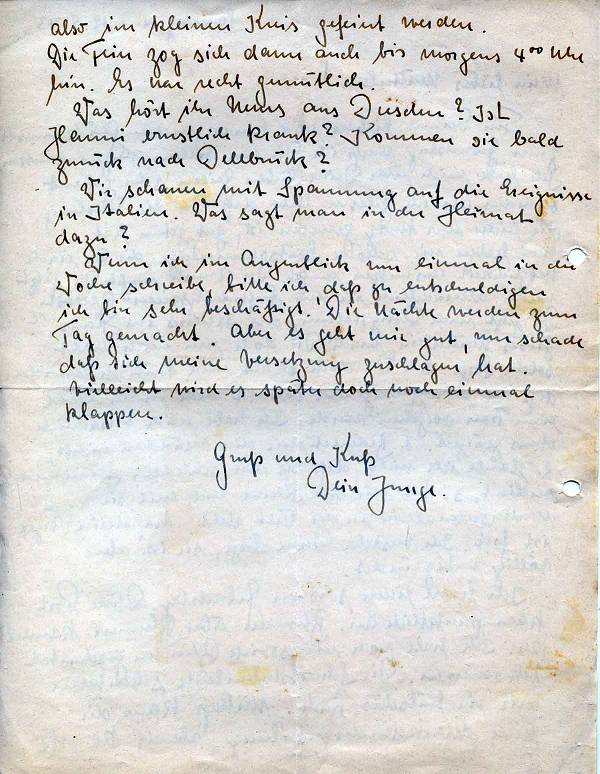 also im kleinen Kreis gefeiert werden.
Die Feier zog sich dann auch bis morgens 4⁰⁰ Uhr
hin. Es war recht gemütlich.
Was hört ihr Neues aus Dresden? Ist
Hanni ernstlich krank? Kommen sie bald
zurück nach Dellbrück?
Wir schauen mit Spannung auf die Ereignisse
in Italien. Was sagt man in der Heimat
dazu?
Wenn ich im Augenblick nur einmal in die
Woche schreibe, bitte ich, daß zu entschuldigen
ich bin sehr beschäftigt. Die Nächte werden zum
Tag gemacht. Aber es geht mir gut, nur schade
daß sich meine Versetzung zuschlagen hat.
Vielleicht wird es später doch noch einmal
klappen.
Gruß und Kuß
Dein Junge.